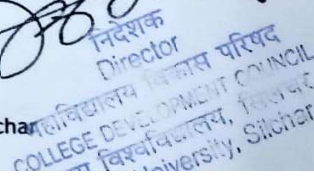 निदेशक
Director
महाविद्यालय विकास परिषद
COLLEGE DEVELOPMENT COUNCIL
char
विश्वविद्यालय, सिलचर
University, Silchar